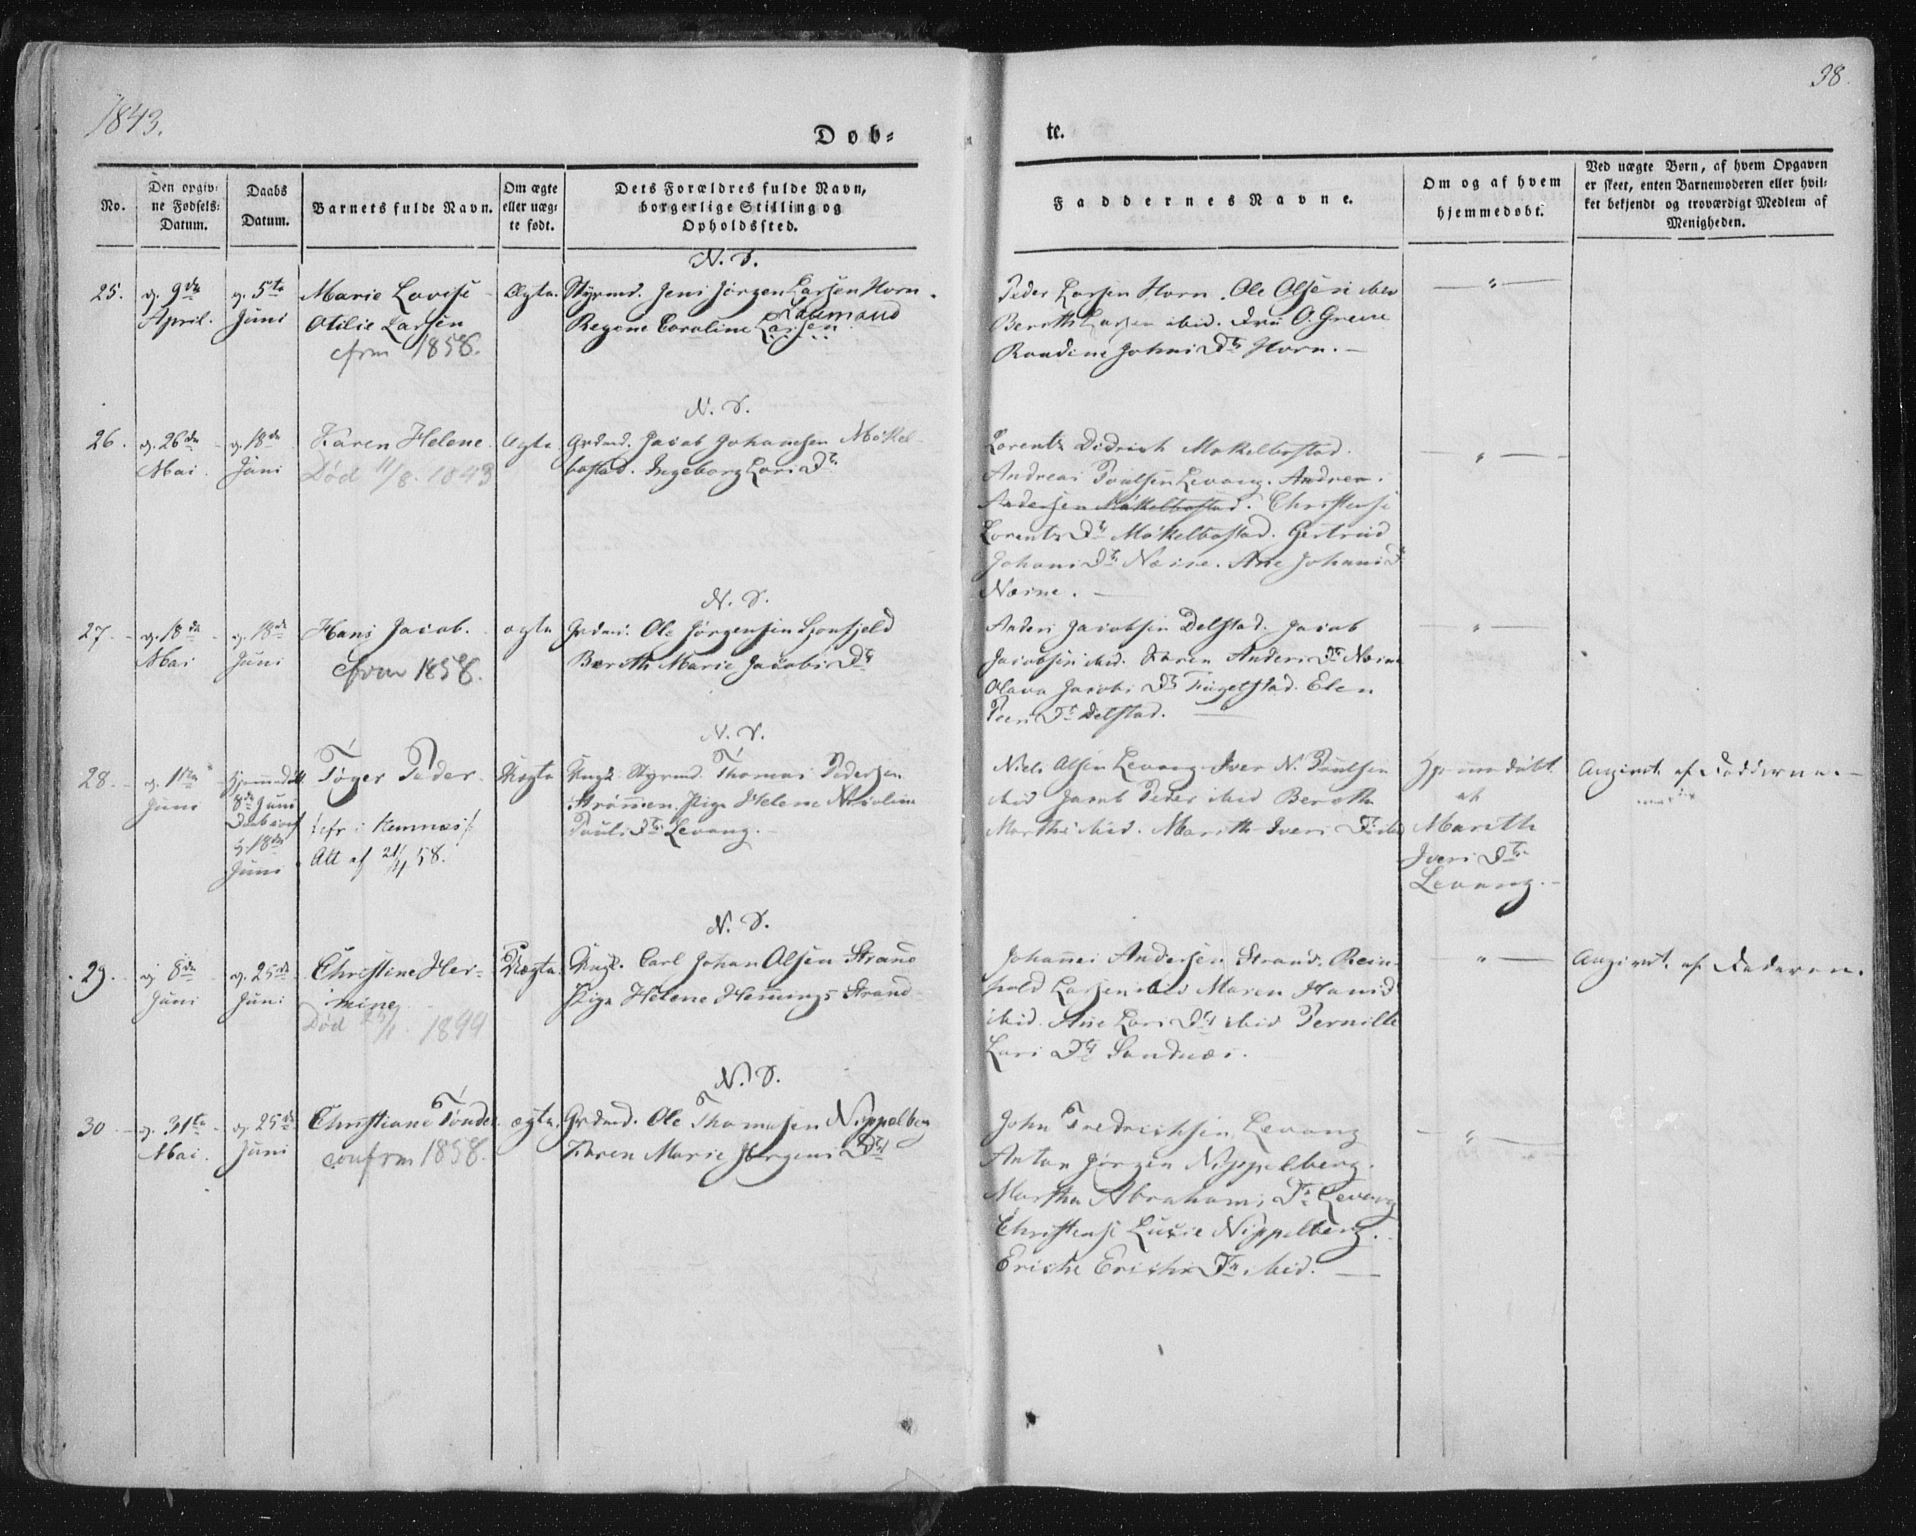 1843.
38.
Døb-
te.
No.
Den opgiv-
ne Fødsels-
Datum.
Daabs
Datum.
Barnets fulde Navn.
Om ægte
eller uæg-
te født.
Dets Forældres fulde Navn,
borgerlige Stilling og
Opholdssted.
Faddernes Navne.
Om og af hvem
hjemmedøbt.
Ved uægte Børn, af hvem Opgaven
er skeet, enten Barnemoderen eller hvil-
ket bekjendt og troværdigt Medlem af
Menigheden.
N. S.
25.
9de
April.
5te
Juni
Marie Lovise
Otilie Larsen
cfrm 1858.
Ægte.
Styrmd. Jens Jørgen Larsen Horn.
Regine Caroline Larsen
Peder Larsen Horn. Ole Olsen ibid
Bereth Larsen ibid. O. Greve
Johns Dtr Horn.
N. S.
26.
26de
Mai.
18de
Juni
Karen Helene
Død 11/8. 1843
Ægte
Grdmd. Jacob Johansen Møkel-
bostad. Ingeborg Lars Dtr.
Lorents Didrich Møkelbostad.
Andreas Poulsen Levang. Andrea.
Andersen Møkelbostad. Christense
Lorents Dtr Møkelbostad. Gertrud
Johans Dtr Næsne. Ane Johans D
Næsne.
N. S.
27.
18de
Mai
18de
Juni
Hans Jacob.
cfrm 1858.
ægte
Grdmd. Ole Jørgensen
Bereth Marie Jacobs Dtr
Anders Jacobsen Delstad. Jacob
Jacobsen ibid. Karen Anders Dtr
Olava Jacobs Dtr. Elen
Peers Dtr Delstad.
N. S.
28.
1ste
Juni
Hjemmedøbt
8de Juni
18de
Juni
Tøger Peder
cfr i Hemnæs
Att af 21/4 58.
Uægte
Ungk. Styrmd. Thomas Pedersen
Strømen. Pige Helene Nicoline
Pauls Dtr Levang.
Niels Olsen Levang. Iver N. Paulsen
ibid Jacob Peder ibid Bereth
Marthe ibid. Mareth Ivers Dtr ibid
Hjemmedøbt
af
Mareth
Ivers Dtr
Levang.
Angivet af Fadderne.
N. S.
29.
8de
Juni
25de
Juni
Christine Her-
mine
Uægte
Ungk. Carl Johan Olsen Strand
Pige Helene Hemmings Strand
Johannes Andersen Strand. Rein-
hold Larsen ibid Maren Hans D
ibid. Ane Lars Dtr ibid Pernille
Lars Dtr Sandnæs.
Angivet af Faderen.
N. S.
30
31te
Mai.
25de
Juni
Christiane Tønder
confrm 1858.
ægte.
Grdmd. Ole Thomasen Nippelberg
Karen Marie Jørgens Dtr
John Fredrichsen Levang
Anton Jørgen Nippelberg.
Martha Abrahams Dtr Levang
Christense Lucie Nippelberg.
Eriche Erichs Dtr ibid.